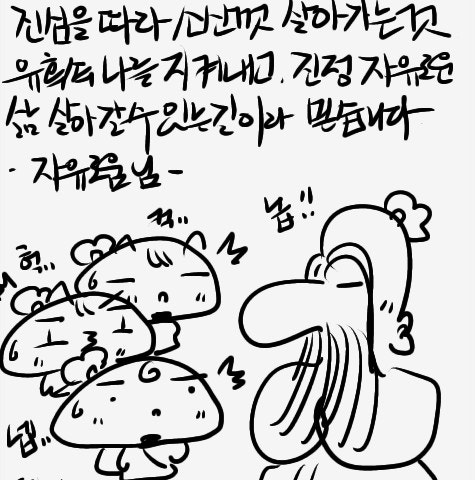 진심을 따라 소신껏 살아가는 것
유희의 나를 지켜내고. 진정 자유로운
삶 살아갈 수 있는 길이라 믿습니다
- 자유로움 님 -
컥..
헉..
넵!!
넵..